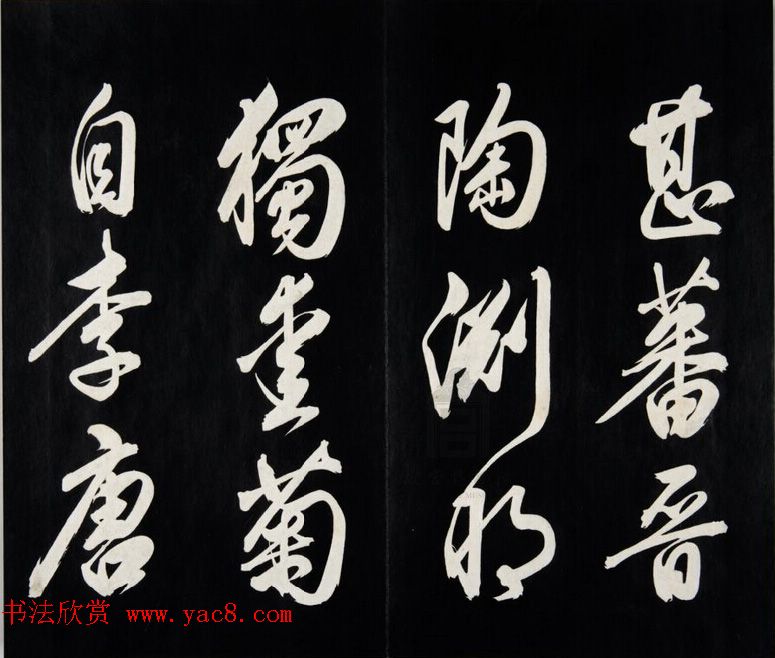 甚蕃晋
陶渊明
獨爱菊
自李唐
书法欣赏 www.yac8.com